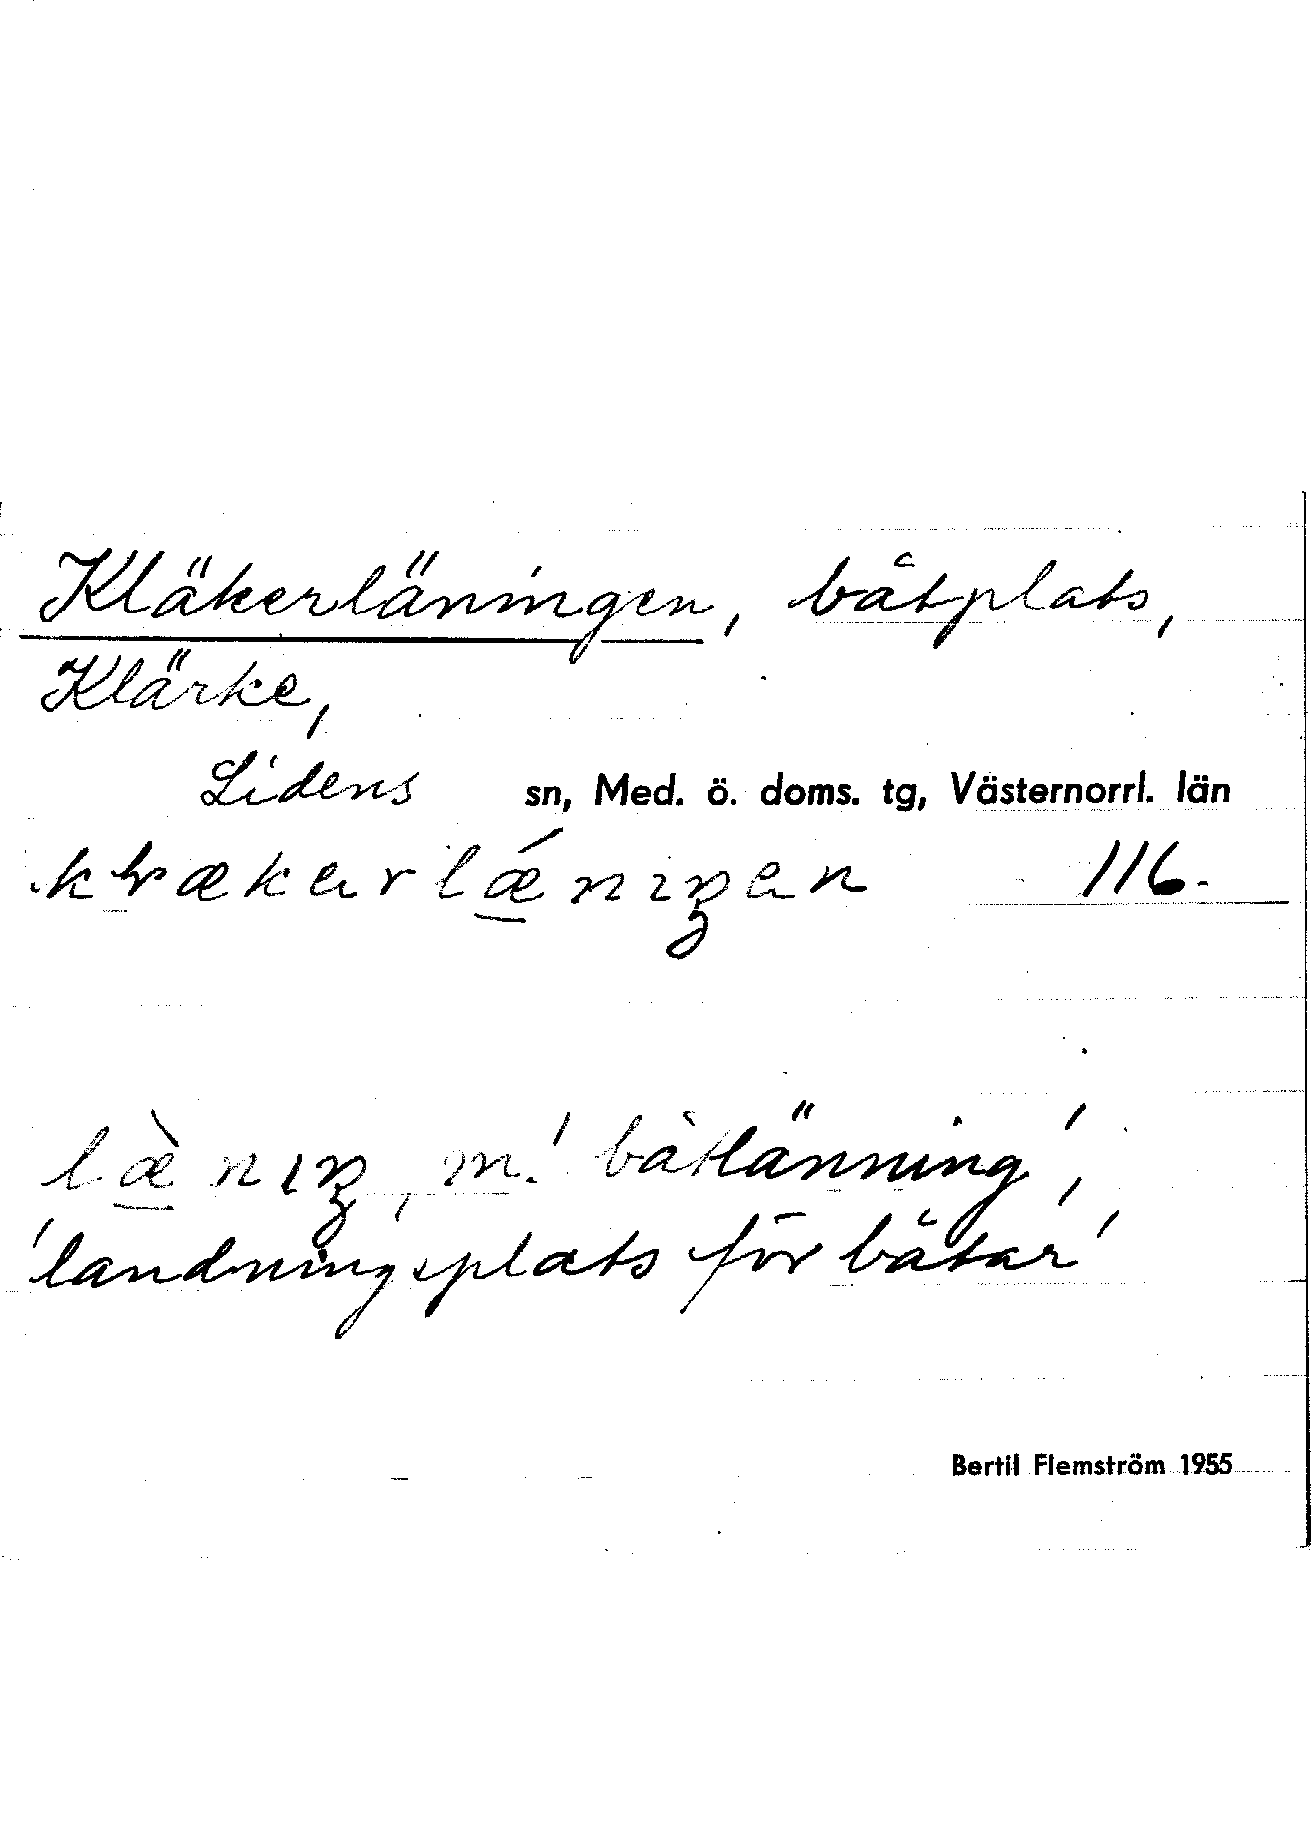 Kläkerläningen, båtplats,
Klärke,
Lidens sn, Med. ö. doms. tg, Västernorrl. län
116.
m. 'båtlänning',
'landningsplats för båtar'
Bertil Flemström 1955